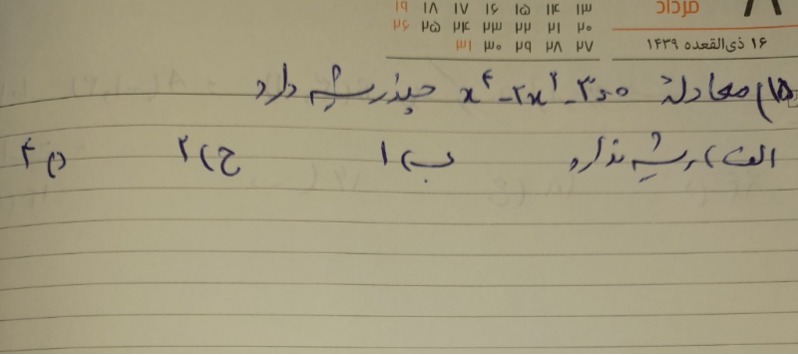 ۱۳ ۱۴ ۱۵ ۱۶ ۱۷ ۱۸ ۱۹
مرداد
۲۰ ۲۱ ۲۲ ۲۳ ۲۴ ۲۵ ۲۶
۱۶ ذی‌القعده ۱۴۳۹
۲۷ ۲۸ ۲۹ ۳۰ ۳۱
۱۵) معادلهٔ x⁴-۲x²-۳=۰ چند ریشه دارد
الف) ریشه ندارد ب) ۱ ج) ۲ د) ۴